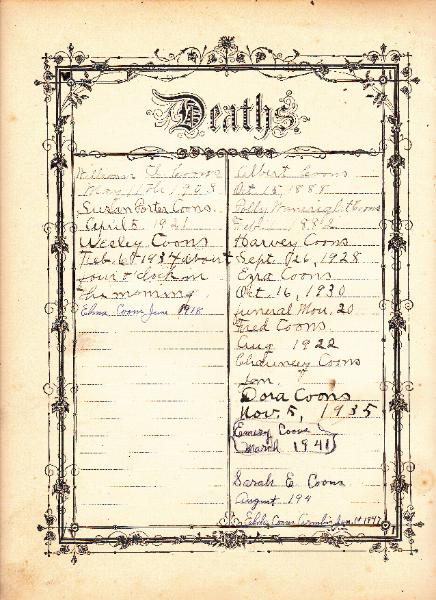 Deaths
William H. Coons
May 11th 1908
Susan Porter Coons.
April 5 1921
Wesley Coons
Feb. 6th 1934 about
four o clock in
the morning.
Elma Coons June 1918
Albert Coons
Oct 15 1888
Polly Wainright Coons
Feb
Harvey Coons
Sept 26, 1928
Ezra Coons
Oct 16, 1930
funeral Mon. 20
Fred Coons
Aug 1922
Chauncey Coons
Jan.
Dora Coons
Nov. 5, 1935
Emery Coons
March 1941
Sarah E Coons
August 194
Coons Jan. 1st